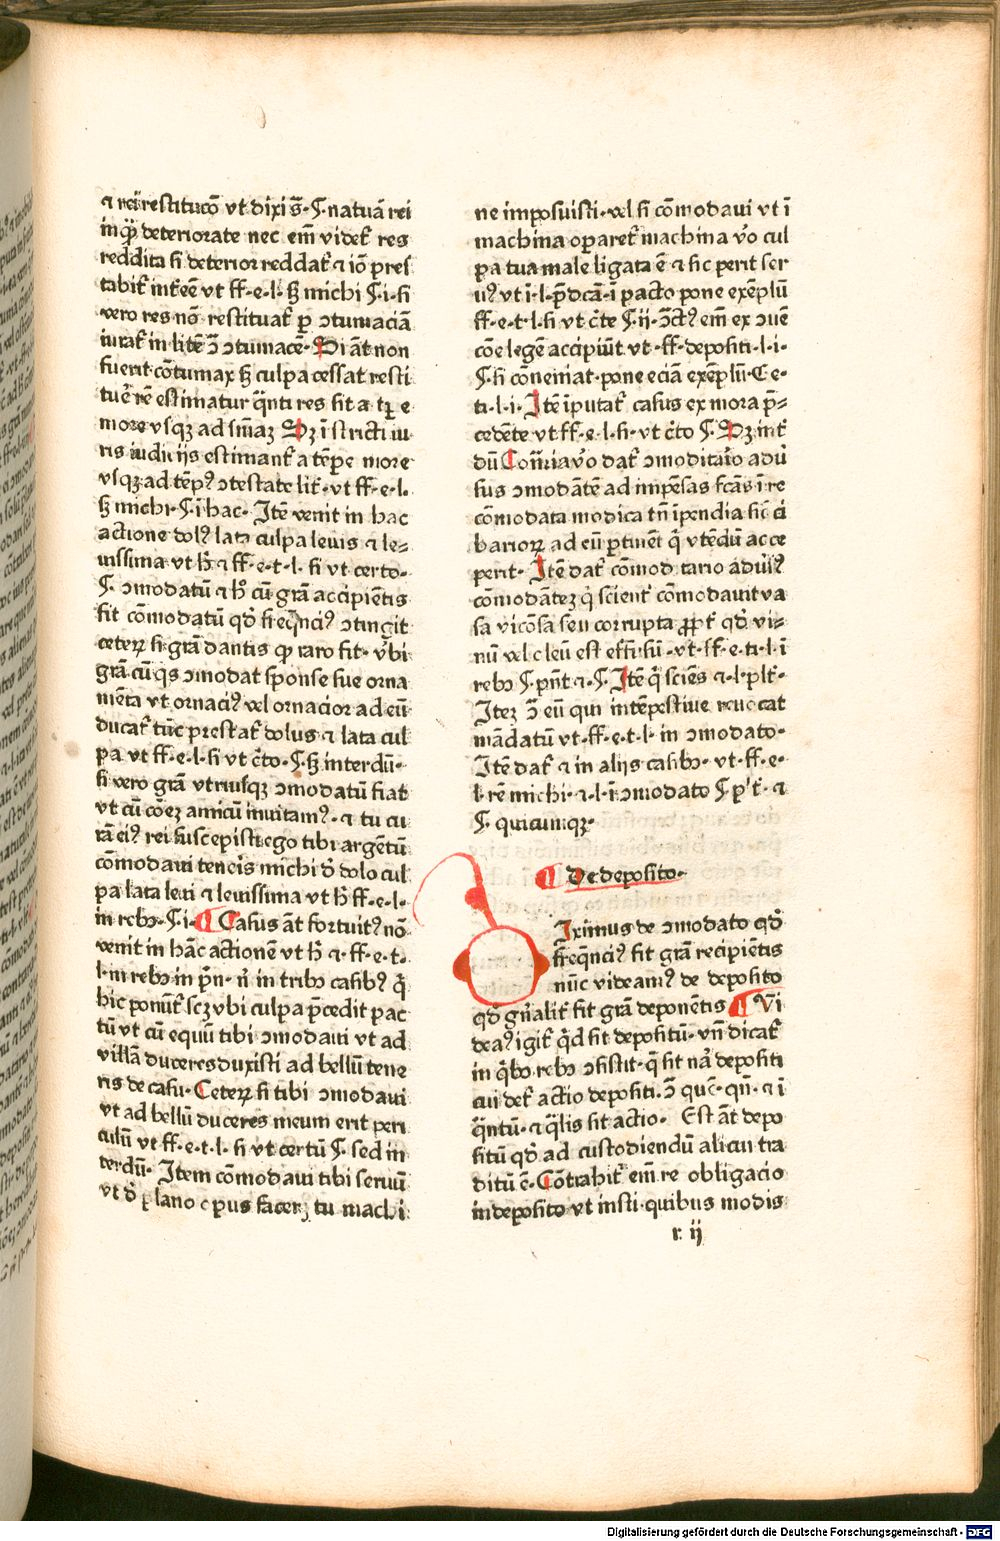 ⁊ rei restitucō vt dixi s̄·§·natuā rei
in qͣ deteriorate nec em̄ videt᷑ res
reddita si deterior reddat᷑ ⁊ iō pres
tabit᷑ int᷑eē vt ff·e·l·sꝫ michi §·i·si
vero res nō restituat᷑ ꝑ ꝯtumaciā
iurat᷑ in litē ꝯ̄ ꝯtumacē· Si āt non
fuerit cōtumax sꝫ culpa cessat resti
tuēr rē estimatur q̄nti res sit a tꝑe
more vsqꝫ ad sn̄iaꝫ Sꝫ ī stricti iu
ris iudiciis estimant᷑ a tēꝑe more
vsqꝫ ad tēpꝰ ꝯtestate lit᷑· vt ff·e·l·
sꝫ michi·§·ī hac· Itē venit in hac
actione dolꝰ lata culpa leuis ⁊ le⸗
uissima vt h̄ ⁊ ff·e·t·l· si vt certo·
§· ꝯmodatū ⁊ hͦ cū grā accipiētis
fit cōmodatū qd̓ freqn̄ciꝰ ꝯtingit
ceterꝝ si grā dantis qꝫ raro fit· v̓bi
grā cū qͥs ꝯmodat sponse sue orna
mēta vt ornaciꝰ vel ornacior ad eū
ducat᷑ tūc prestat᷑ dolus ⁊ lata cul
pa vt ff·e·l·si vt c̓to·§·sꝫ interdū·
si vero grā vtriusqꝫ ꝯmodatū fiat
vt cū cōeꝫ amicū inuitamꝰ· ⁊ tu cu
rā eiꝰ rei suscepisti ego tibi argētū
cōmodaui teneris michi d̓ dolo cul
pa lata leui ⁊ leuissima vt h̄ ff·e·l·
in rebꝫ·§·i· Casus āt fortuitꝰ nō
venit in hāc actionē vt h̄ ⁊ ff·e·t·
l·in rebꝫ in pn̄· n̄ in tribꝫ casibꝰ qͥ
hic ponūt᷑ scꝫ vbi culpa p̄cedit pac
tū vt cū equū tibi ꝯmodaui vt ad
villā duceres duxisti ad bellū tene
ris de casu· Ceterꝝ si tibi ꝯmodaui
vt ad bellū duceres meum erit peri
culū vt ff·e·t·l· si vt certū §· sed in
terdū· Item cōmodaui tibi seruū
vt d̓ plano opus facerꝫ tu machi
ne imposuisti·vel si cōmodaui vt ī
machina oꝑaret᷑ machina v̓o cul
pa tua male ligata ē ⁊ sic perit ser
uꝰ vt ī·l·p̄dcā·ī pacto pone exēplū
ff·e·t·l·si vt c̓te §·ii·ꝯ̄ctꝰ em̄ ex ꝯuē
cōe legē accipiūt vt·ff·depositi·l·i·
§·si cōneniat·pone eciā exēplū·C e·
ti·l·i· Itē īputat᷑ casus ex mora p̄⸗
cedēte vt ff·e·l·si·vt c̓to §· Sꝫ int᷑
dū Cōtraria v̓o dat᷑ ꝯmoditaīo adu̓
sus ꝯmodātē ad impēsas fcās ī re
cōmodata modica tn̄ īpendia sic ci
bariorꝝ ad eū ꝑtinēt qͥ vtēdū acce
perit· Itē dat᷑ cōmod tario adu̓sꝰ
cōmodāteꝫ qͥ scient᷑ cōmodauit va
sa viciosa seu corrupta ꝓpt᷑ qd̓ vi⸗
nū vel oleū est effusū·vt·ff·e·ti·l·ī
rebꝫ §·pn̄t ⁊·§·Itē qͥ sciēs ⁊·l·plt᷑·
Iteꝫ ꝯ̄ eū qui intēpestiue reuocat
mādatū vt·ff·e·t·l· in ꝯmodato·
Itē dat᷑ ⁊ in aliis casibꝫ· vt·ff·e·
l·rē michi·⁊·l·ī ꝯmodato §·pͥt᷑·⁊
§· quicumqꝫ·
De deposito·
Iximus de ꝯmodato qd̓
freqn̄ciꝰ fit grā recipiētis
nūc videamꝰ de deposito
qd̓ gn̄alit᷑ fit grā deponētis Vi
deaꝰ igit᷑ qͥd sit depositū·vn̄ dicat᷑
in qͥbꝫ rebꝫ ꝯsistit·q̄ sit nāͣ depositi
cui det᷑ actio depositi·ꝯ̄ quē·qn̄·⁊ ī
q̄ntū·⁊ qͣlis sit actio· Est āt depo
sitū qd̓ ad custodiendū alicui tra
ditū ē· Cōtrahit᷑ em̄ re obligacio
in deposito vt insti·quibus modis
r ij
Digitalisierung gefördert durch die Deutsche Forschungsgemeinschaft - DFG